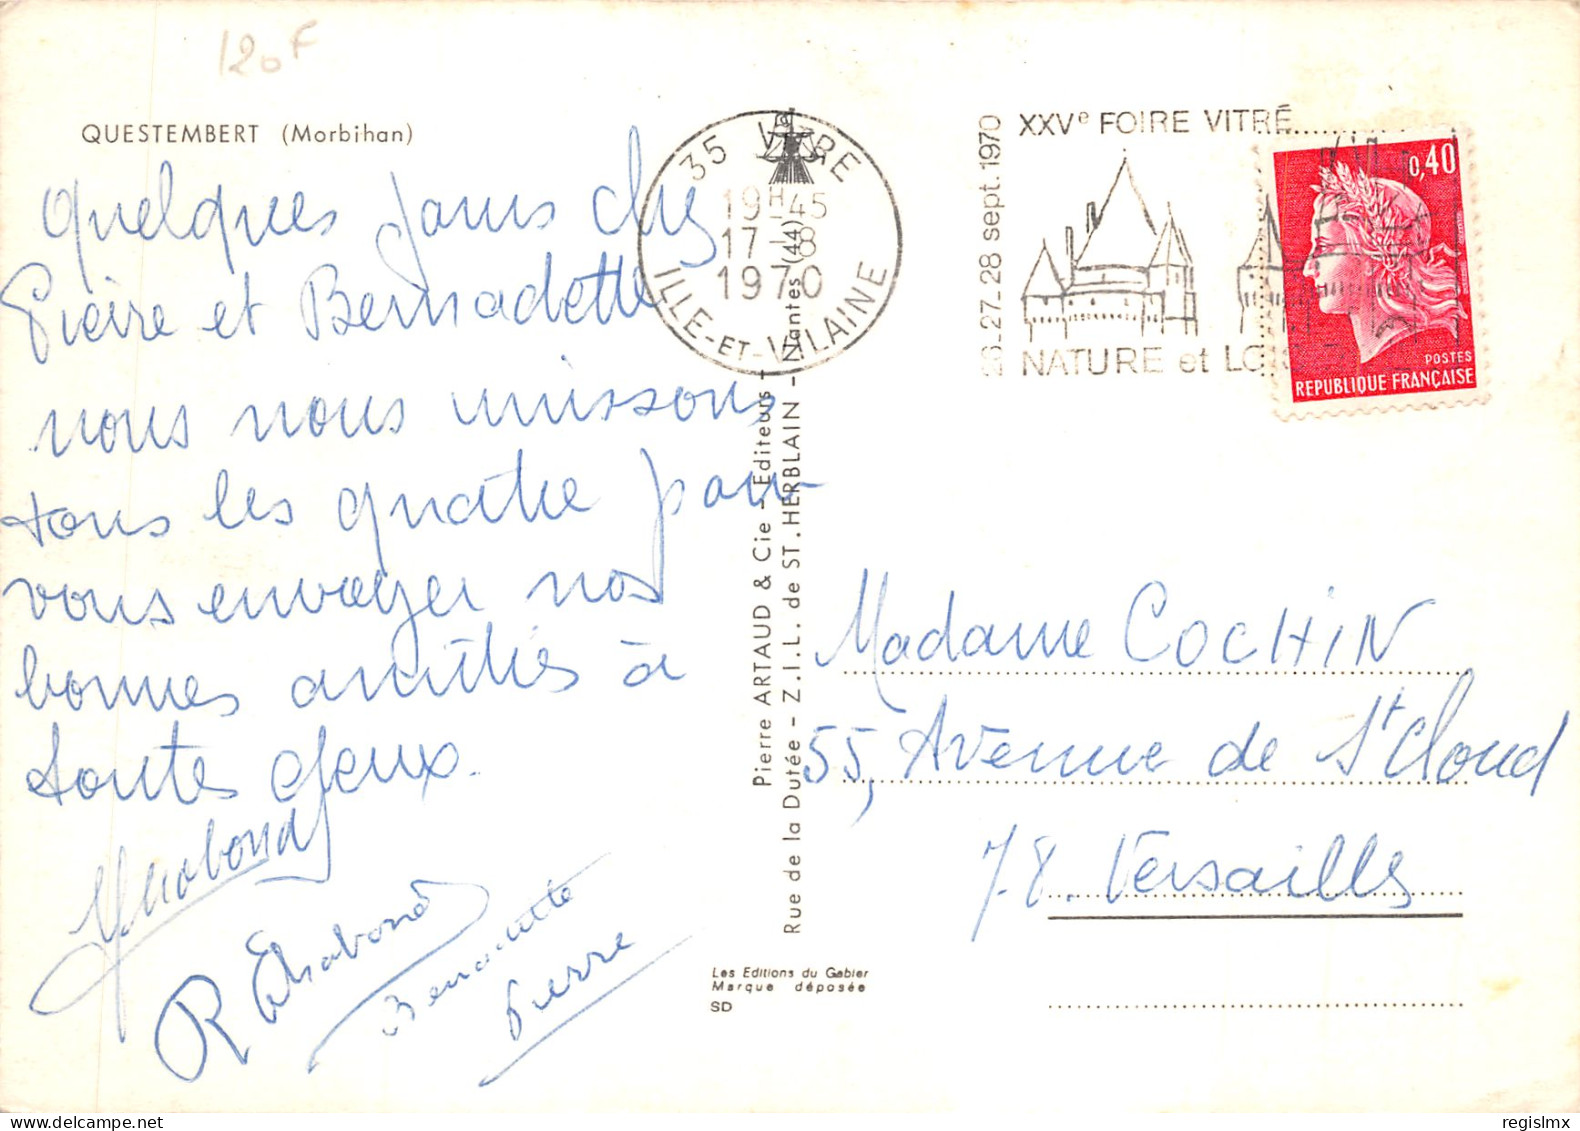 120F
QUESTEMBERT (Morbihan)
Quelques jours chez
Pierre et Bernadette
nous nous unissons
tous les quatre pour
vous envoyer nos
bonnes amitiés à
toutes deux.
Chabond
R Chabond
Bernadette
Pierre
35 VITRE
19H45
17-8
1970
ILLE-ET-VILAINE
26-27-28 sept. 1970
XXVe FOIRE VITRÉ
NATURE et LOIS
0,40
POSTES
REPUBLIQUE FRANÇAISE
Pierre ARTAUD & Cie - Editeurs -
Rue de la Dutée - Z.I.L. de ST. HERBLAIN - Nantes (44)
Madame COCHIN
55, Avenue de St Cloud
78. Versailles
Les Editions du Gabier
Marque déposée
SD
www.delcampe.net
regislmx